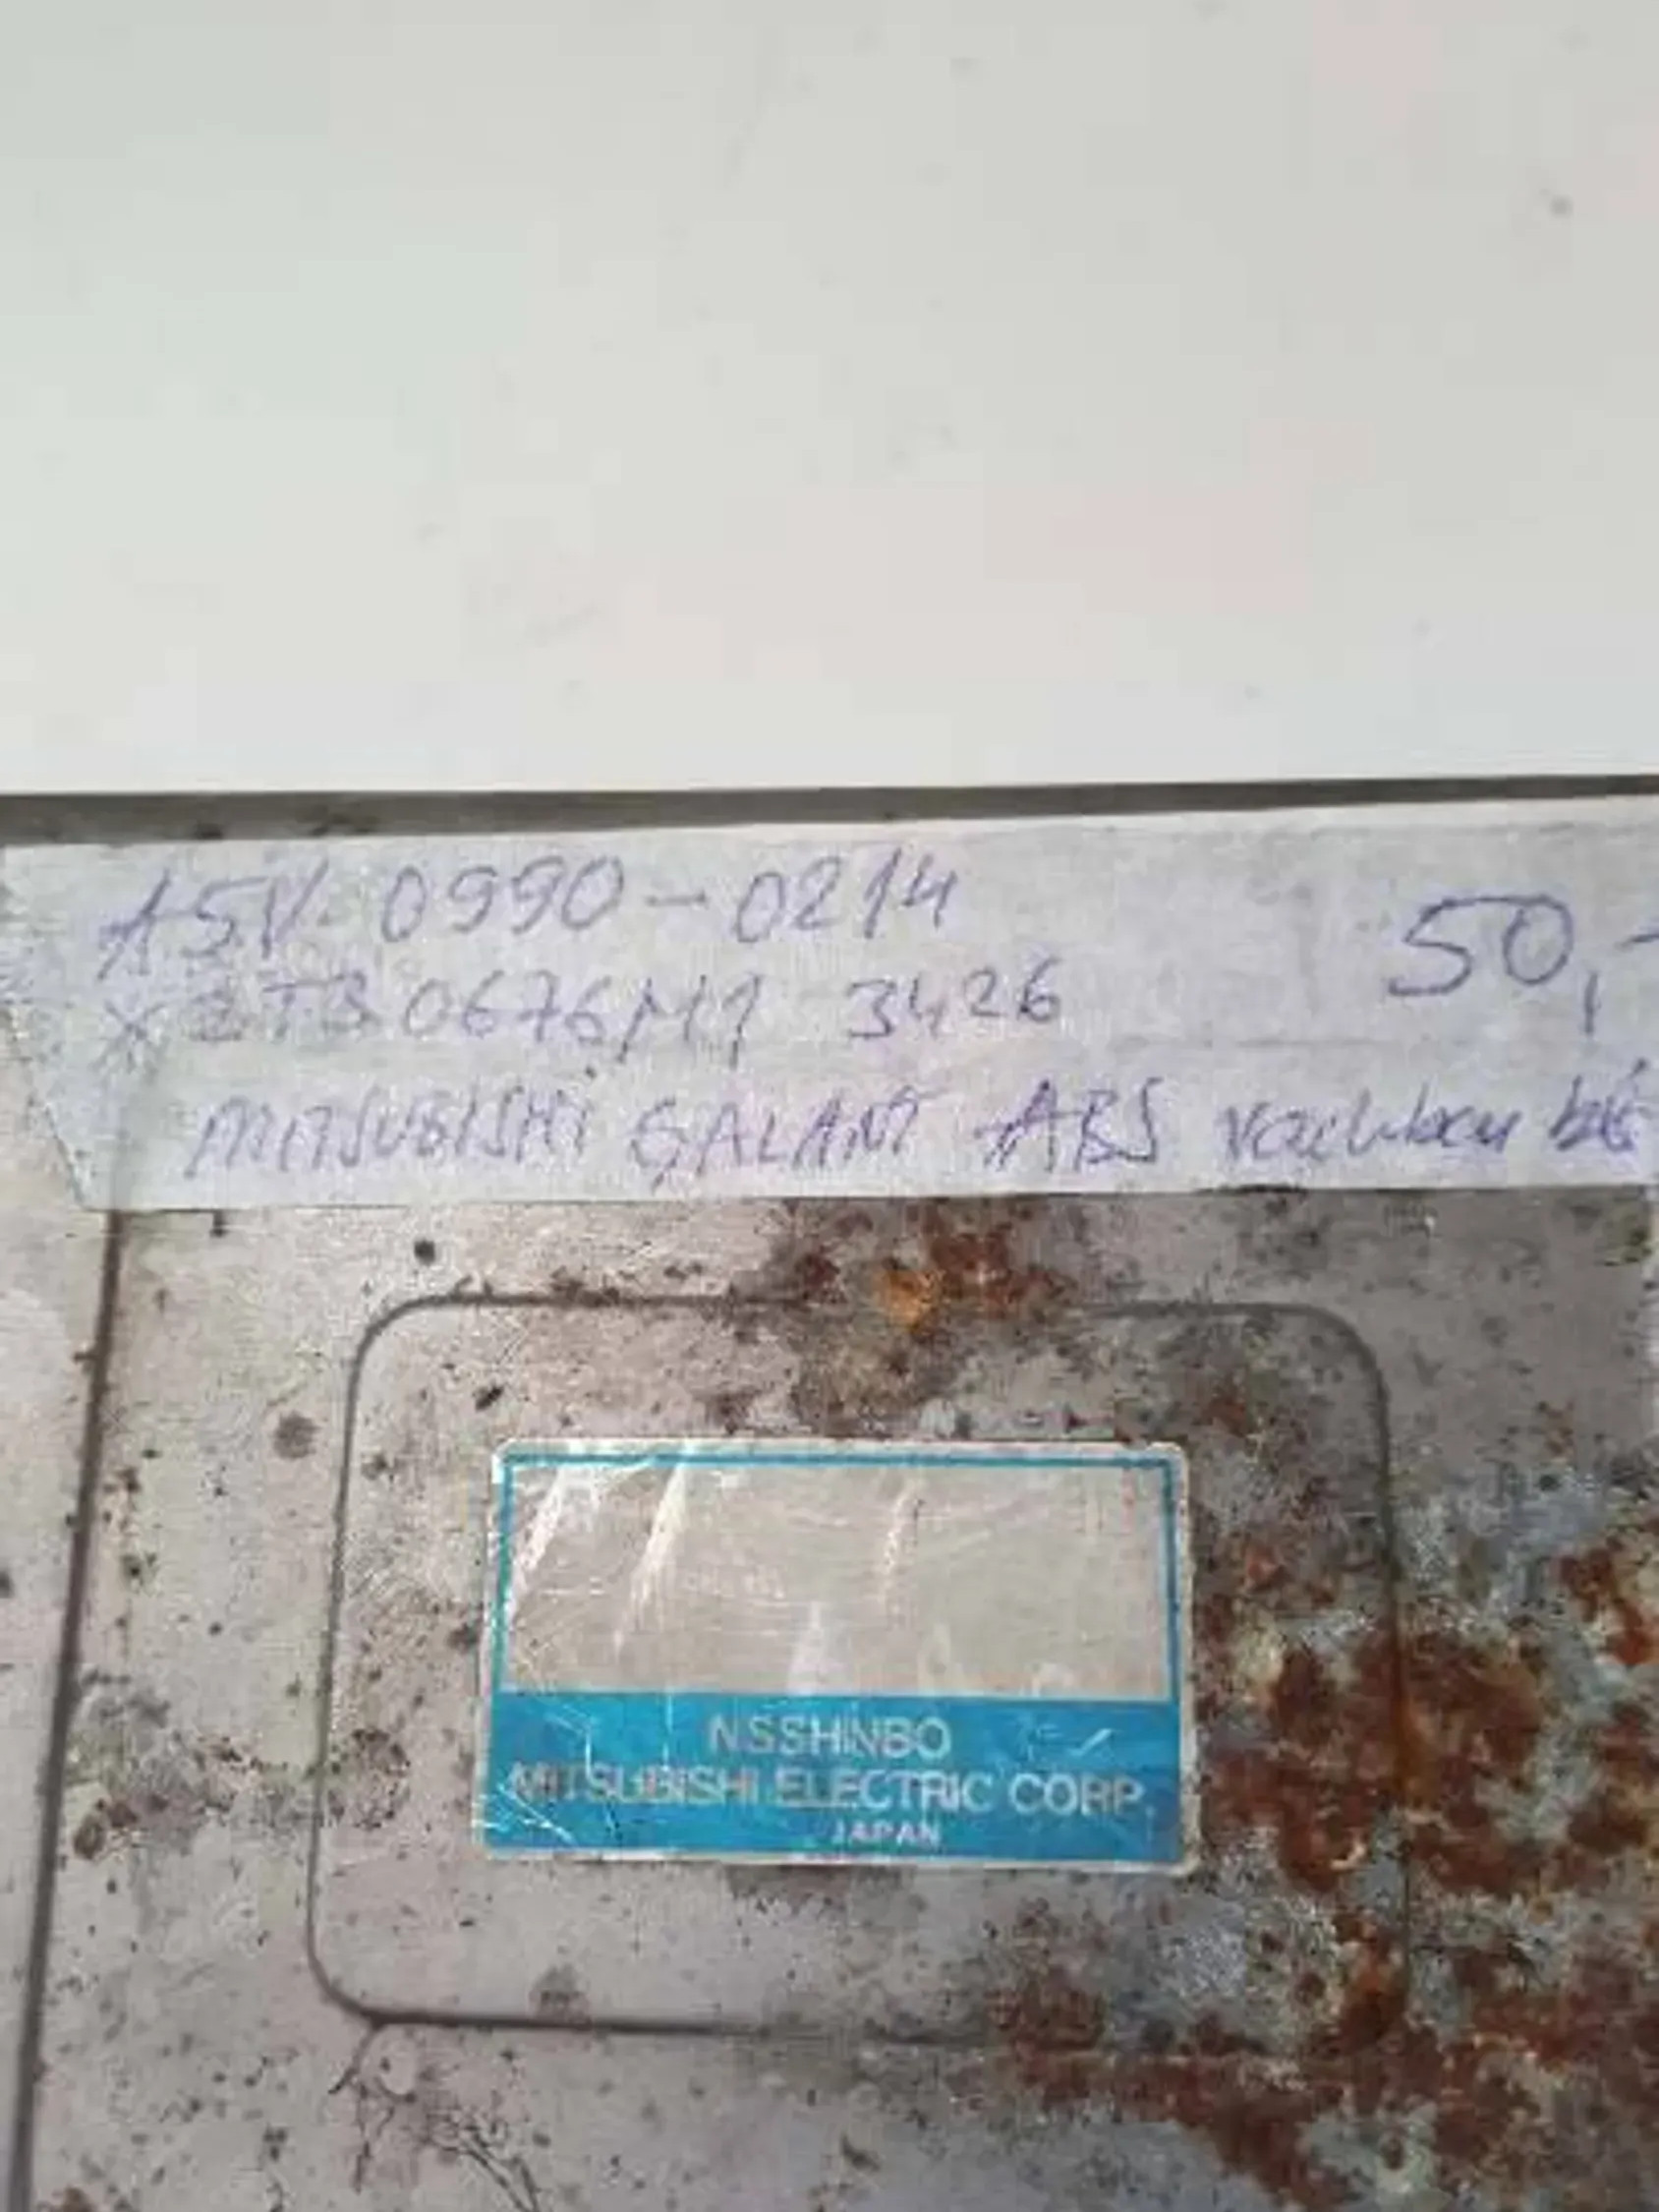 ASV. 0990-0214 50,-
X2T30676M1 3426
MITSUBISHI GALANT ABS
NISSHINBO
MITSUBISHI ELECTRIC CORP.
JAPAN